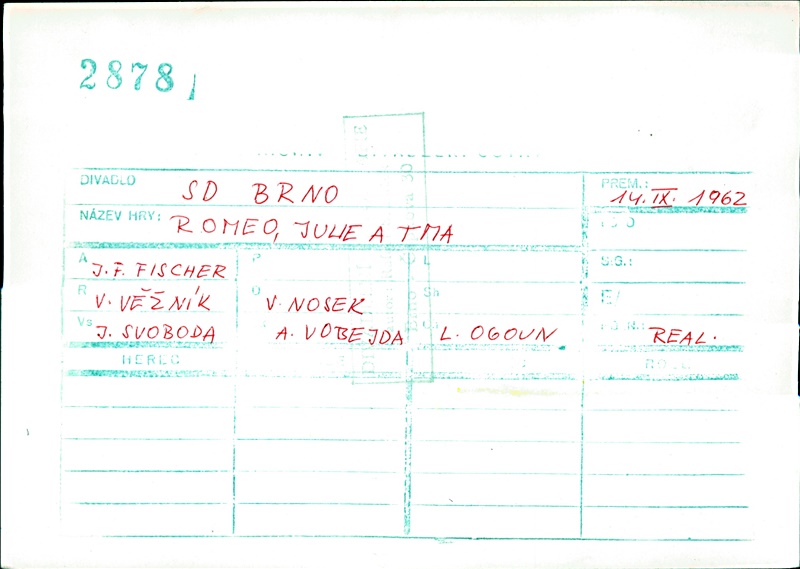 2878
DIVADLO SD BRNO PREM.: 14. IX. 1962
NÁZEV HRY: ROMEO, JULIE A TMA
A J. F. FISCHER P L S.G.:
R V. VĚŽNÍK O V. NOSEK Sh
Vs J. SVOBODA A. VOBEJDA L. OGOUN REAL.
HEREC